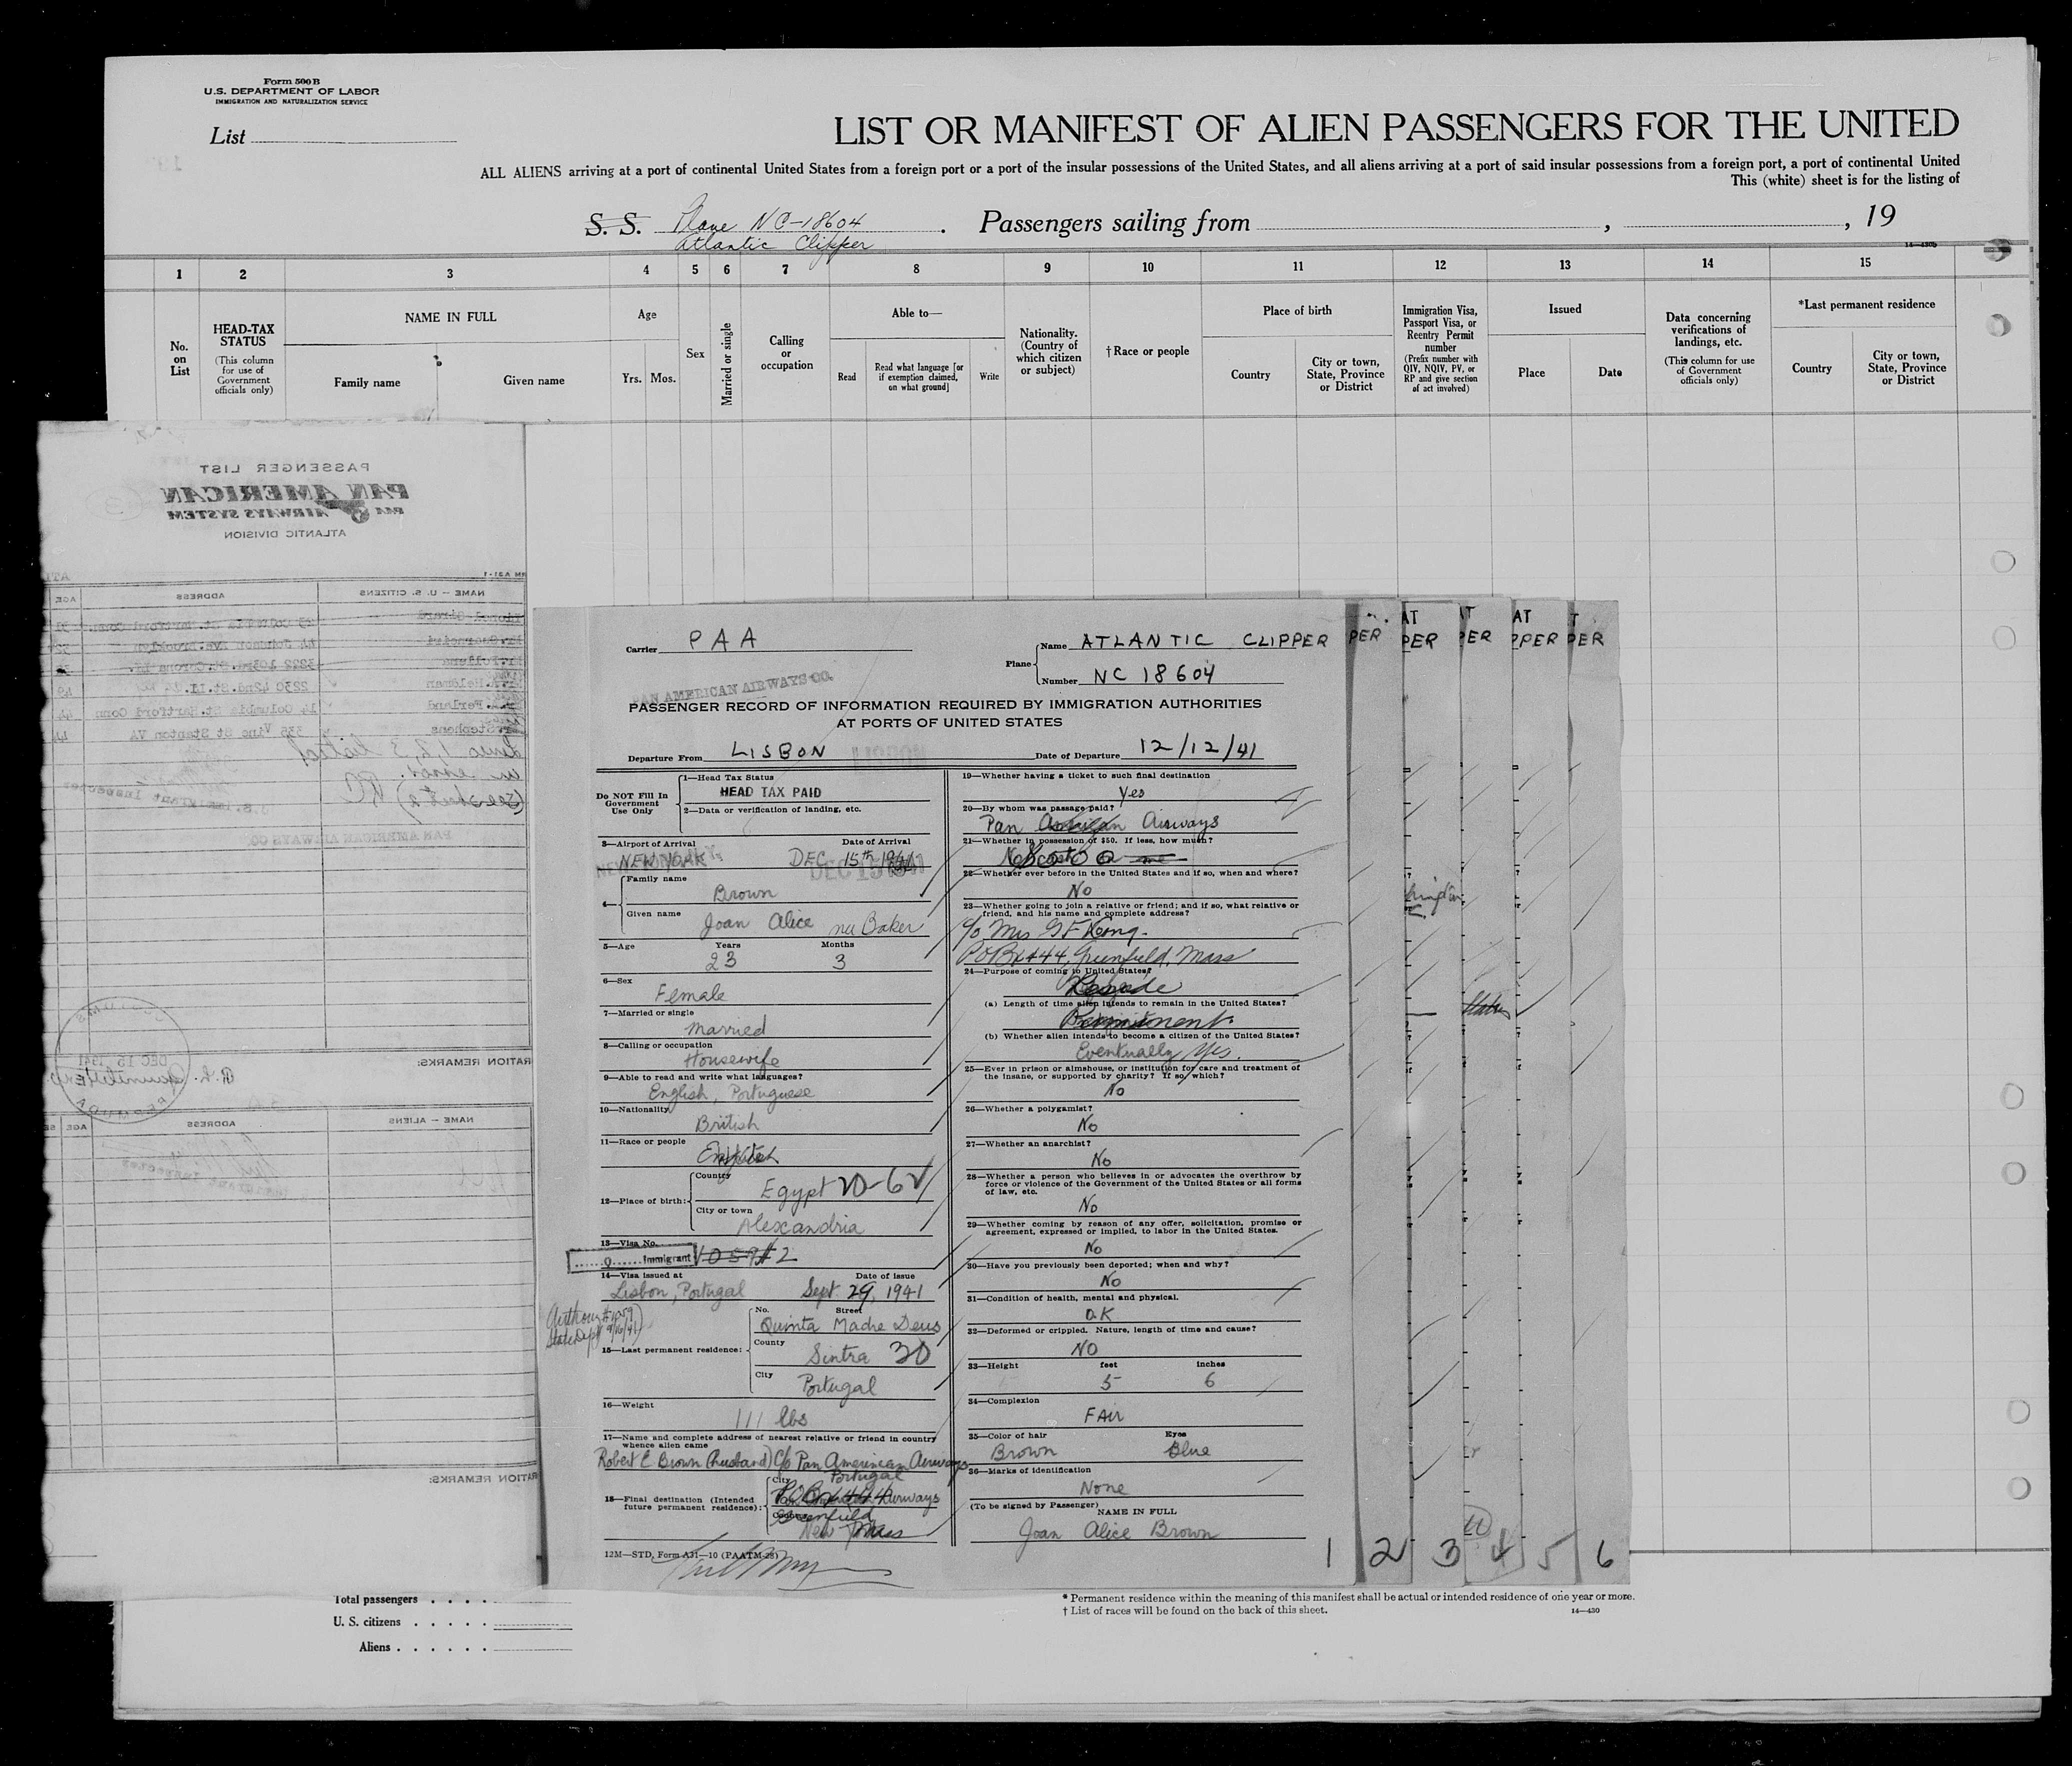 Form 500 B
U.S. DEPARTMENT OF LABOR
IMMIGRATION AND NATURALIZATION SERVICE
List
LIST OR MANIFEST OF ALIEN PASSENGERS FOR THE UNITED
ALL ALIENS arriving at a port of continental United States from a foreign port or a port of the insular possessions of the United States, and all aliens arriving at a port of said insular possessions from a foreign port, a port of continental United
This (white) sheet is for the listing of
S. S. Plane NC-18604 . Passengers sailing from , , 19
Atlantic Clipper
1 2 3 4 5 6 7 8 9 10 11 12 13 14 15
No. on List
HEAD-TAX STATUS
(This column for use of Government officials only)
NAME IN FULL
Family name
Given name
Age
Yrs. Mos.
Sex
Married or single
Calling or occupation
Able to—
Read
Read what language [or if exemption claimed, on what ground]
Write
Nationality. (Country of which citizen or subject)
† Race or people
Place of birth
Country
City or town, State, Province or District
Immigration Visa, Passport Visa, or Reentry Permit number
(Prefix number with QIV, NQIV, PV, or RP and give section of act involved)
Issued
Place
Date
Data concerning verifications of landings, etc.
(This column for use of Government officials only)
*Last permanent residence
Country
City or town, State, Province or District
PASSENGER LIST
PAN AMERICAN
PAA AIRWAYS SYSTEM
ATLANTIC DIVISION
NAME — U. S. CITIZENS
ADDRESS
AGE
2230 42nd.St.
14 Columbia St.Hartford Conn
Stephens
335 Vine St Stanton VA
Lines 1, 2, 3 listed
in error.
(See sheet 2)
U.S. Immigrant Inspector
PAN AMERICAN AIRWAYS CO
DEC 15 1941
BERMUDA
RATION REMARKS:
NAME — ALIENS
ADDRESS
AGE
RATION REMARKS:
Carrier PAA
Plane
Name ATLANTIC CLIPPER
Number NC 18604
PAN AMERICAN AIRWAYS CO.
PASSENGER RECORD OF INFORMATION REQUIRED BY IMMIGRATION AUTHORITIES
AT PORTS OF UNITED STATES
Departure From LISBON
Date of Departure 12/12/41
Do NOT Fill In Government Use Only
1—Head Tax Status
HEAD TAX PAID
2—Data or verification of landing, etc.
3—Airport of Arrival Date of Arrival
NEW YORK DEC 15th 1941
4—
Family name
Brown
Given name
Joan Alice nee Baker
5—Age Years Months
23 3
6—Sex
Female
7—Married or single
Married
8—Calling or occupation
Housewife
9—Able to read and write what languages?
English, Portuguese
10—Nationality
British
11—Race or people
12—Place of birth:
Country
Egypt
City or town
Alexandria
13—Visa No.
Immigrant
14—Visa issued at Date of issue
Lisbon, Portugal Sept. 29, 1941
15—Last permanent residence:
No. Street
Quinta Madre Deus
County
Sintra 30
City
Portugal
16—Weight
111 lbs
17—Name and complete address of nearest relative or friend in country whence alien came
Robert E Brown (husband) C/o Pan American Airways
Portugal
18—Final destination (Intended future permanent residence):
City
Country
Mass
12M—STD, Form A31—10 (PAATM-28)
19—Whether having a ticket to such final destination
Yes
20—By whom was passage paid?
Pan American Airways
21—Whether in possession of $50. If less, how much?
22—Whether ever before in the United States and if so, when and where?
No
23—Whether going to join a relative or friend; and if so, what relative or friend, and his name and complete address?
c/o Mrs G F
P O Bx 444, Greenfield, Mass
24—Purpose of coming to United States?
(a) Length of time alien intends to remain in the United States?
Permanent
(b) Whether alien intends to become a citizen of the United States?
Eventually Yes.
25—Ever in prison or almshouse, or institution for care and treatment of the insane, or supported by charity? If so, which?
No
26—Whether a polygamist?
No
27—Whether an anarchist?
No
28—Whether a person who believes in or advocates the overthrow by force or violence of the Government of the United States or all forms of law, etc.
No
29—Whether coming by reason of any offer, solicitation, promise or agreement, expressed or implied, to labor in the United States.
No
30—Have you previously been deported; when and why?
No
31—Condition of health, mental and physical.
OK
32—Deformed or crippled. Nature, length of time and cause?
NO
33—Height feet inches
5 6
34—Complexion
FAir
35—Color of hair Eyes
Brown Blue
36—Marks of identification
None
(To be signed by Passenger)
NAME IN FULL
Joan Alice Brown
1 2 3 4 5 6
Total passengers
U. S. citizens
Aliens
* Permanent residence within the meaning of this manifest shall be actual or intended residence of one year or more.
† List of races will be found on the back of this sheet.
14—430